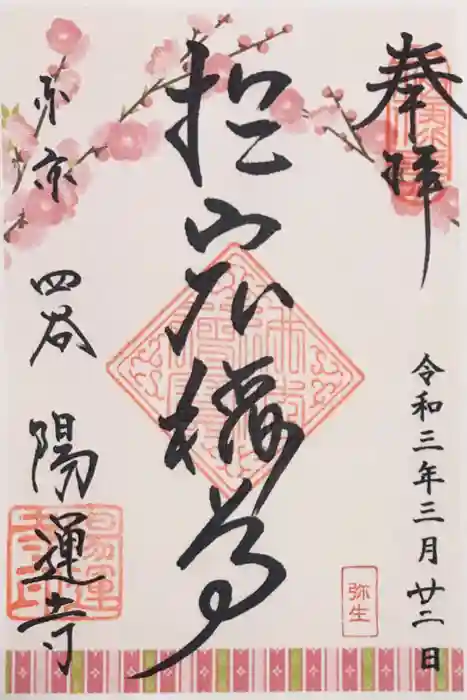 奉拝
令和三年三月廿二日
弥生
於岩稲荷
東京
四谷
陽運寺